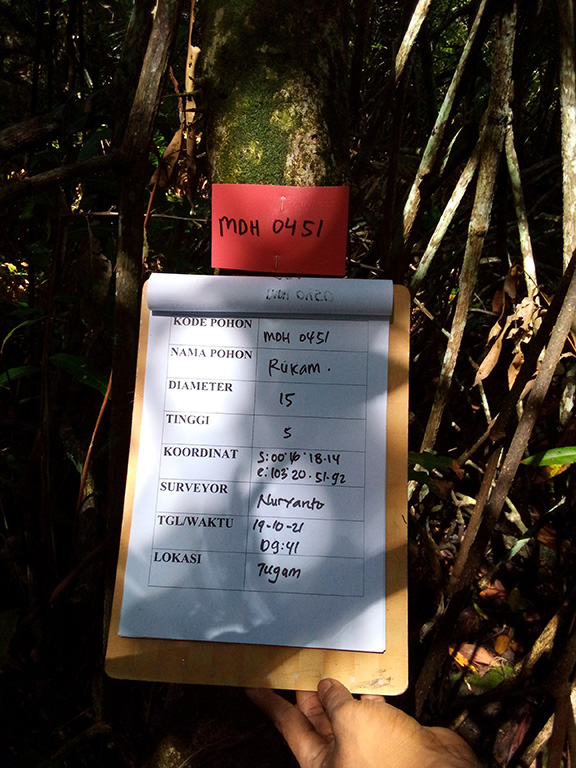 MDH 0451
KODE POHON MDH 0451
NAMA POHON Rukam.
DIAMETER 15
TINGGI 5
KOORDINAT S:00°16'18.14
e:103°20.51.92
SURVEYOR Nuryanto
TGL/WAKTU 19-10-21
09:41
LOKASI Tugam